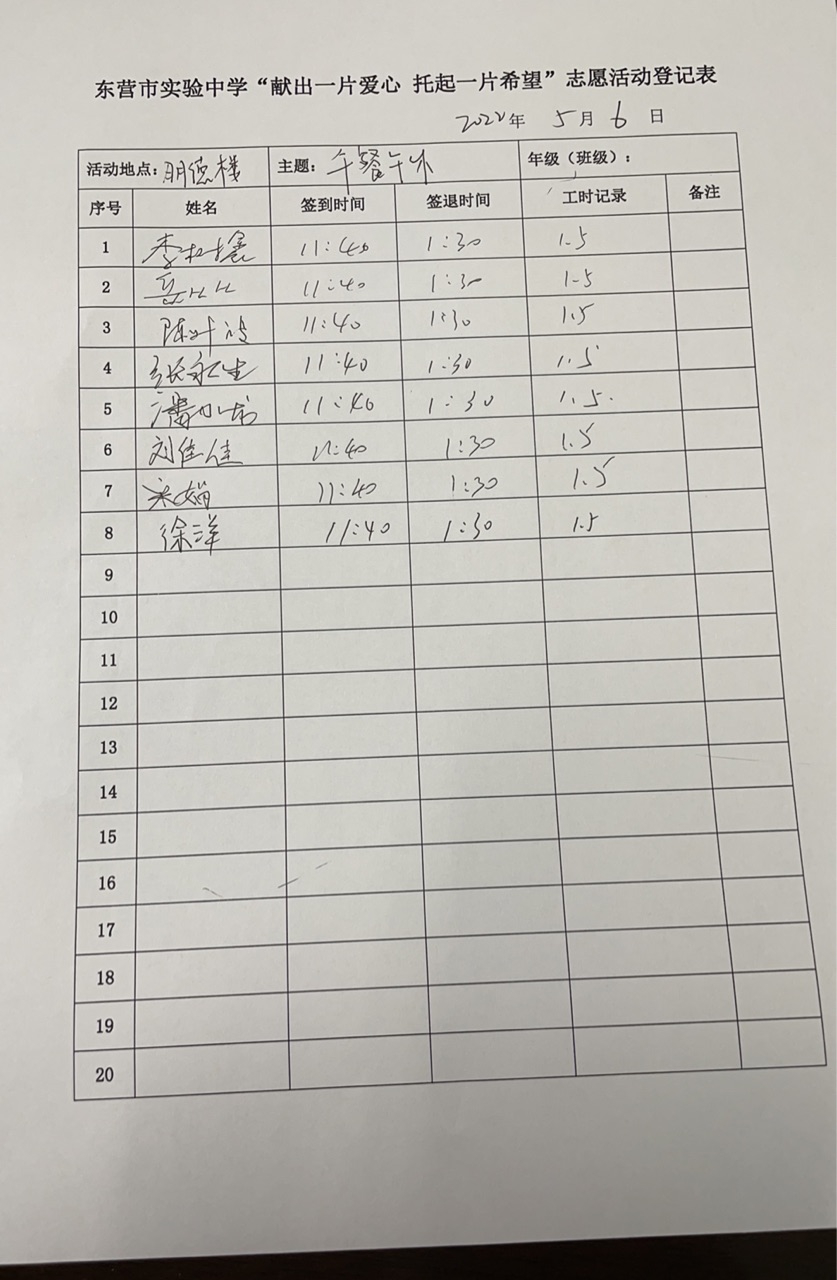 东营市实验中学“献出一片爱心 托起一片希望”志愿活动登记表
2022年 5月6日
活动地点:明德楼 主题:午餐午休 年级(班级):
序号 姓名 签到时间 签退时间 工时记录 备注
1 11:40 1:30 1.5
2 11:40 1:30 1.5
3 11:40 1:30 1.5
4 11:40 1:30 1.5
5 11:40 1:30 1.5.
6 刘佳佳 11:40 1:30 1.5
7 11:40 1:30 1.5
8 徐洋 11:40 1:30 1.5
9
10
11
12
13
14
15
16
17
18
19
20